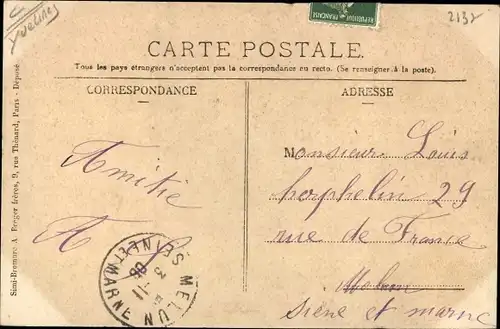 Yvelines
2132
RÉPUBLIQUE FRANÇAISE
CARTE POSTALE
Tous les pays étrangers n'acceptent pas la correspondance au recto. (Se renseigner à la poste).
CORRESPONDANCE
ADRESSE
Simi-Bromure A. Breger frères, 9, rue Thénard, Paris - Déposé
Amitié
A
MELUN
SEINE ET MARNE
Monsieur Louis
horphelin 29
rue de France
Melun
Siene et marne